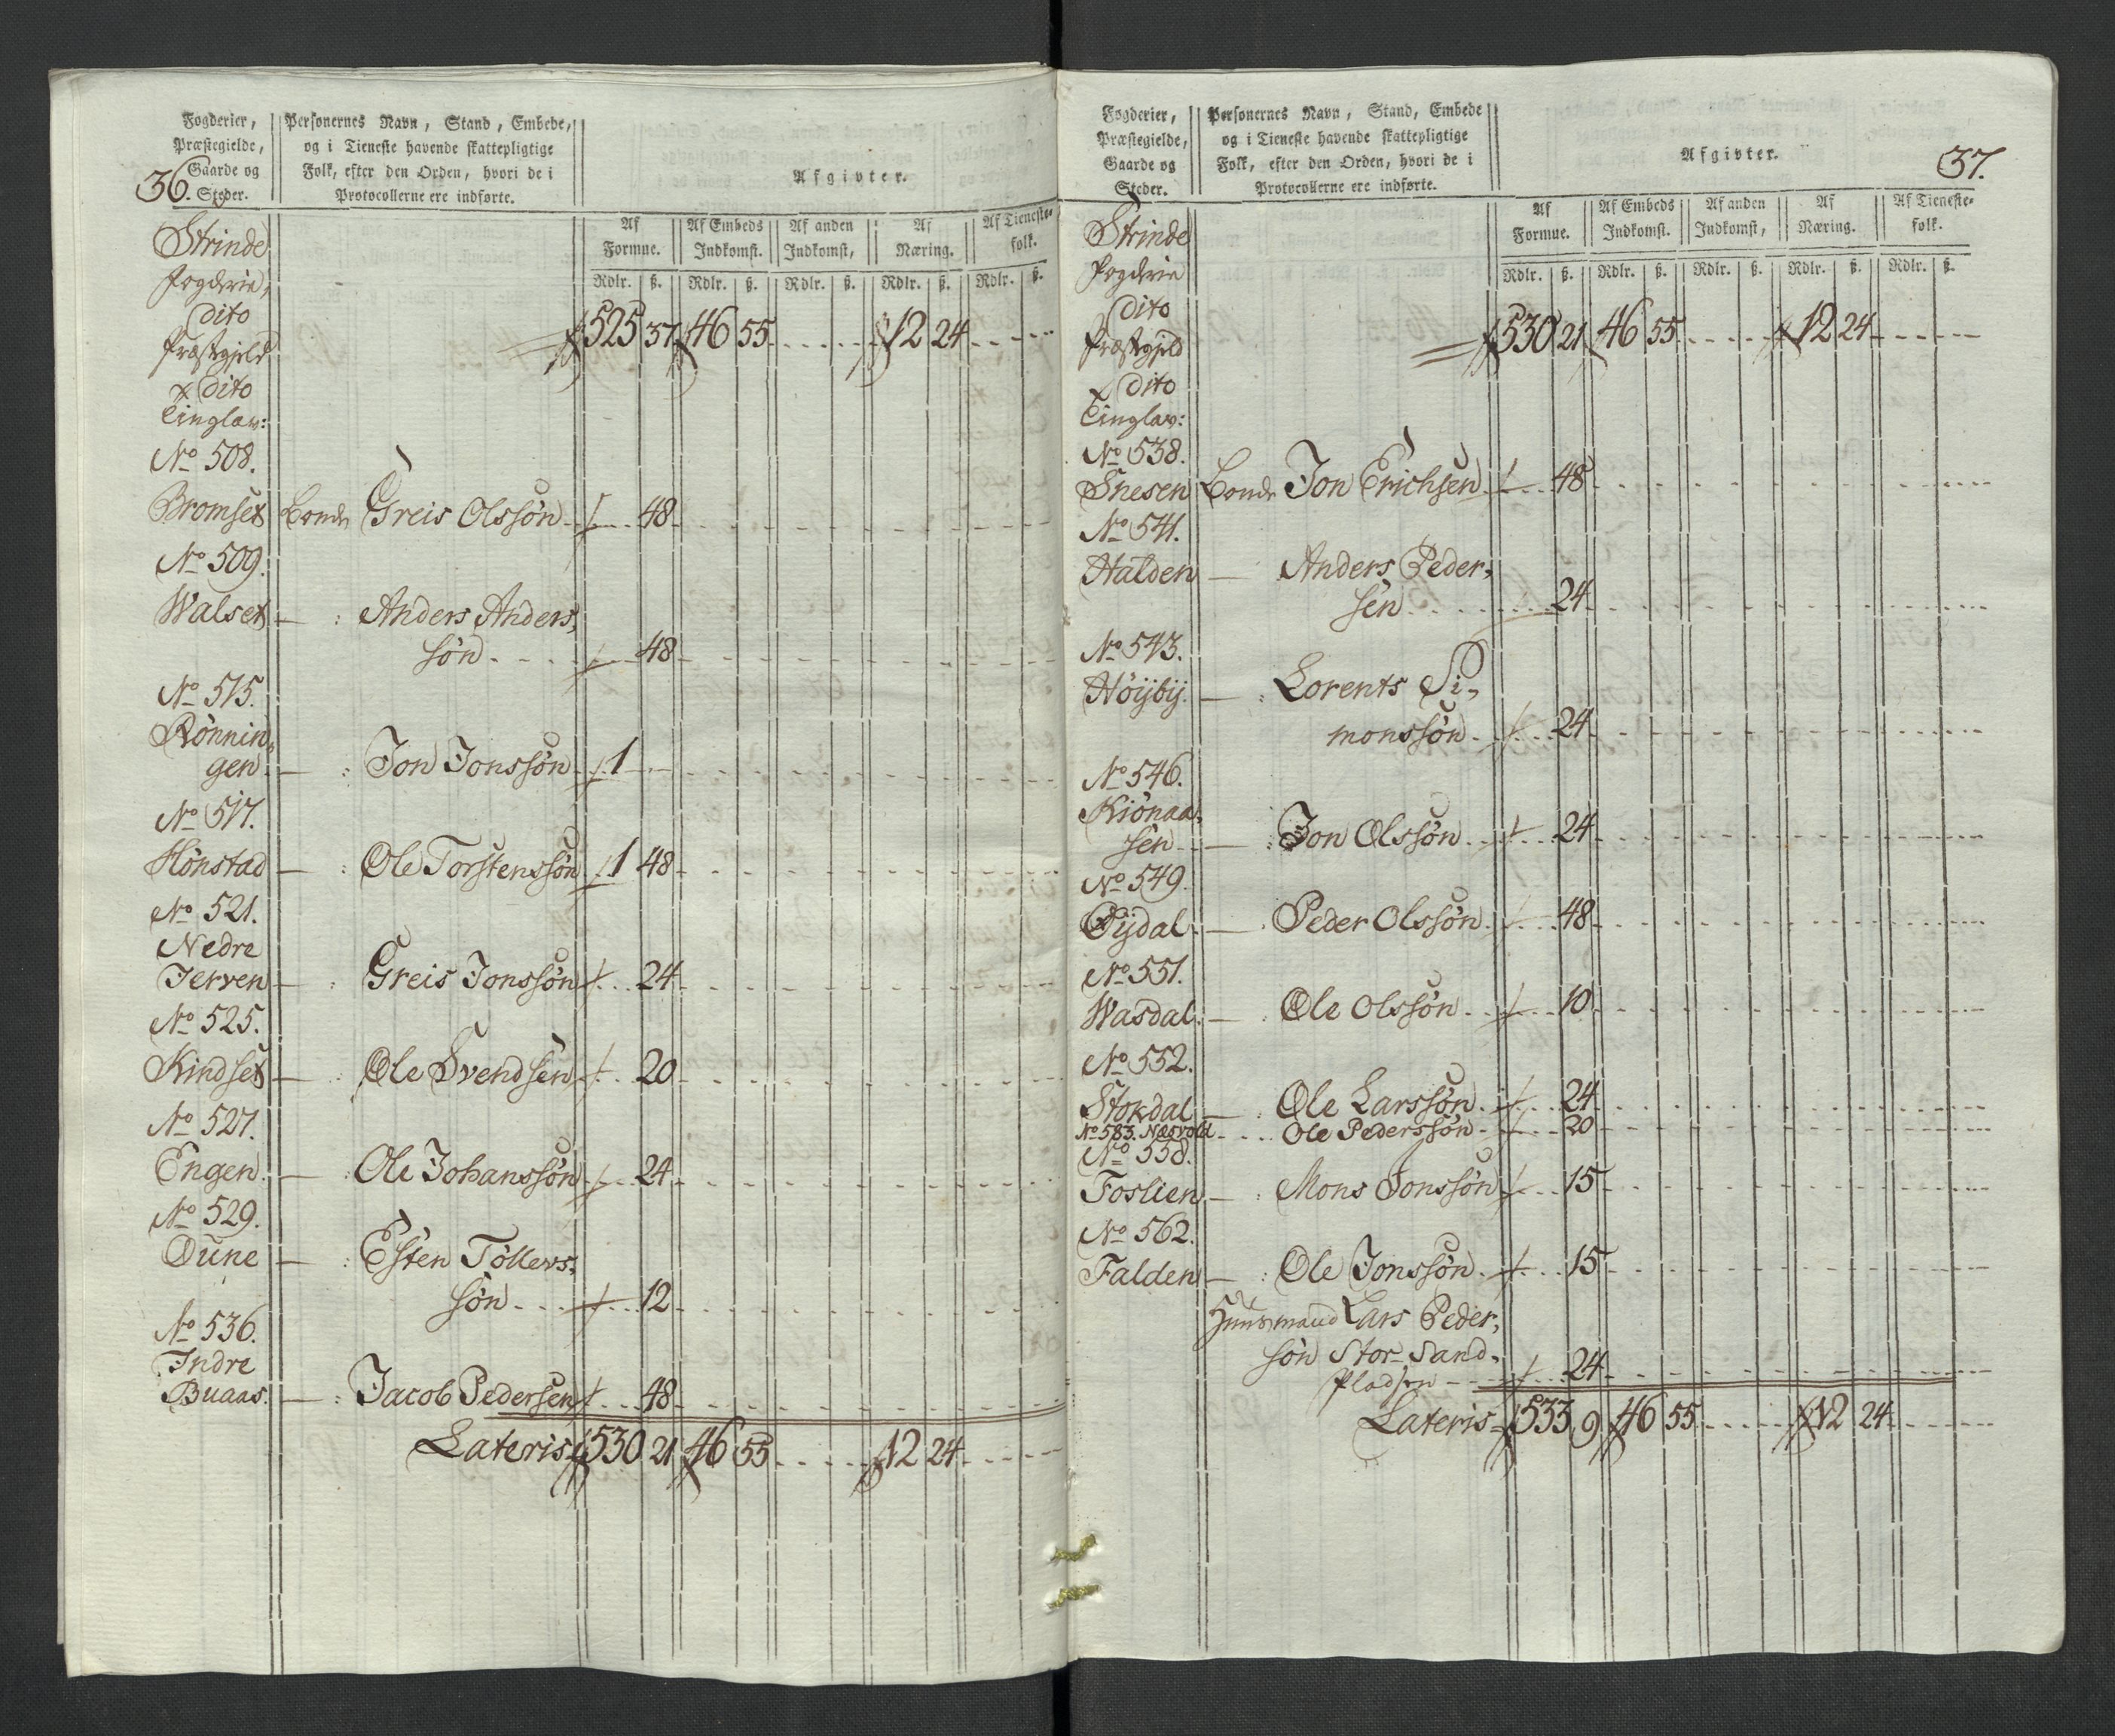 36.
Fogderier, Præstegielde, Gaarde og Steder.
Personernes Navn, Stand, Embede,
og i Tieneste havende skattepligtige
Folk, efter den Orden, hvori de i
Protocollerne ere indførte.
Afgivter.
Af Formue. Af Embeds Indkomst. Af anden Indkomst, Af Næring. Af Tieneste-folk.
Rdlr. ß. Rdlr. ß. Rdlr. ß. Rdlr. ß. Rdlr. ß.
Strinde
Fogderie,
dito
Præstgjeld 525 37 46 55 12 24
& dito
Tinglav:
No 508.
Bromset Bonde Greis Olssøn 48
No 509.
Walset — : Anders Anders,
søn 48
No 515.
Rønnin,
gen — : Jon Jonssøn 1
No 517.
Hønstad — : Ole Torstenssøn 1 48
No 521.
Nedre
Jerven — : Greis Jonssøn 24
No 525.
Kindset — : Ole Svendsen 20
No 527.
Engen — : Ole Johanssøn 24
No 529.
Dune — : Esten Tollevs,
søn 12
No 536.
Indre
Buaas. — : Jacob Pedersen 48
Lateris 530 21 46 55 12 24
37.
Fogderier, Præstegielde, Gaarde og Steder.
Personernes Navn, Stand, Embede
og i Tieneste havende skattepligtige
Folk, efter den Orden, hvori de i
Protocollerne ere indførte.
Afgivter.
Af Formue. Af Embeds Indkomst. Af anden Indkomst, Af Næring. Af Tieneste-folk.
Rdlr. ß. Rdlr. ß. Rdlr. ß. Rdlr. ß. Rdlr. ß.
Strinde
Fogderie
dito
Præstgjeld 530 21 46 55 12 24
& dito
Tinglav:
No 538.
Snesen Bonde Jon Erichsen 48
No 541.
Halden — Anders Peder,
sen 24
No 543.
Høijbij. — : Lorents Si,
monssøn 24
No 546.
Kiönaa,
sen — : Jon Olssøn 24
No 549.
Øijdal — Peder Olssøn 48
No 551.
Wasdal — : Ole Olssøn 10
No 552.
Stokdal — : Ole Larssøn 24
No 583. Næsvold Ole Pederssøn 20
No 558.
Foslien — : Mons Jonssøn 15
No 562.
Falden — : Ole Jonssøn 15
Huusmand Lars Peder,
søn Stor-Sand,
Pladsen 24
Lateris 533 9 46 55 12 24